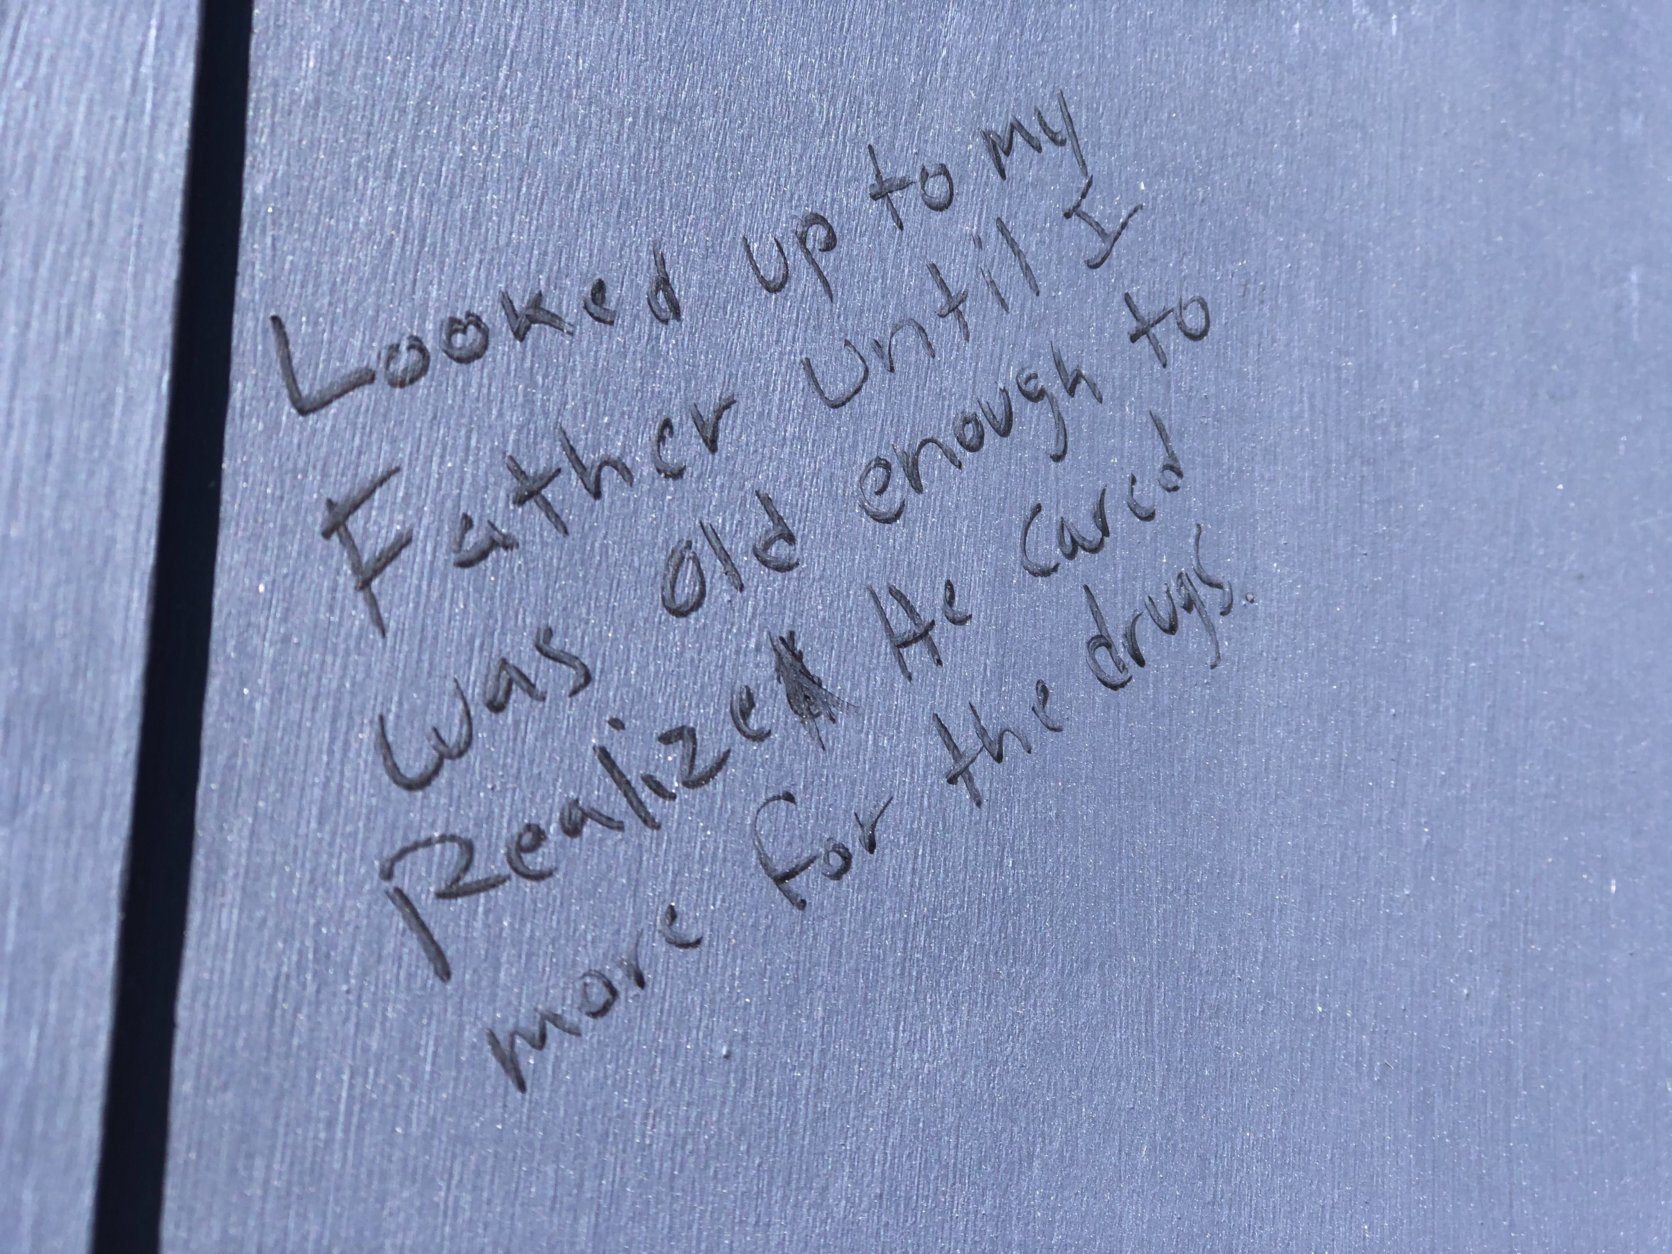 Looked up to my
Father until I
was old enough to
Realize He cared
more for the drugs.